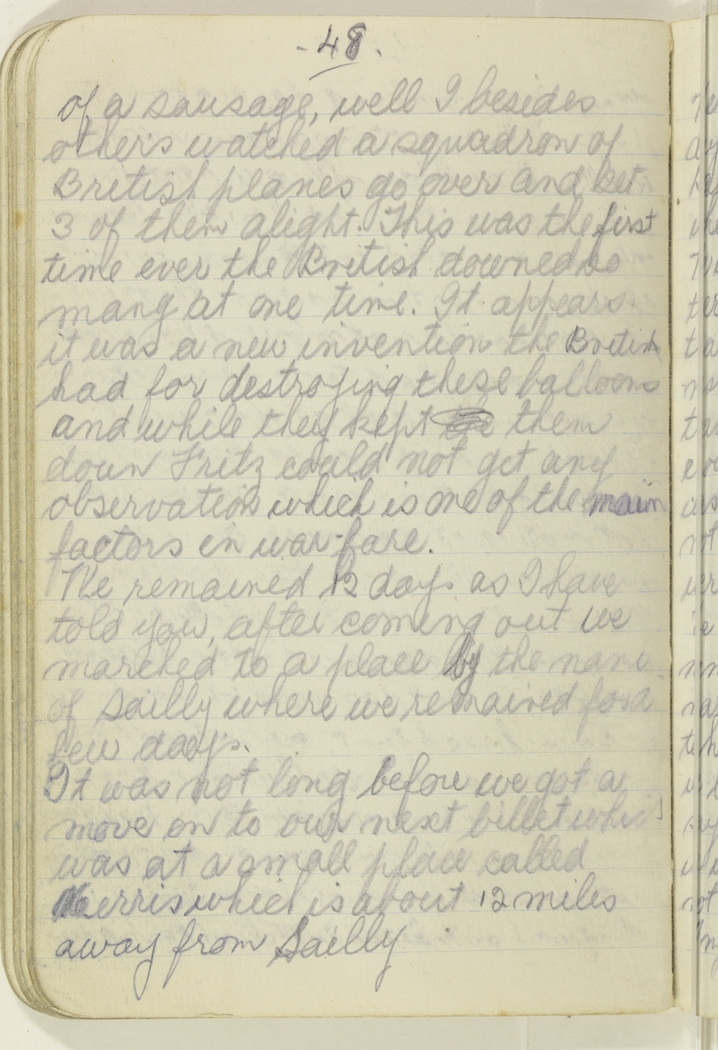 - 48 -
of a sausage, well I besides
others watched a squadron of
British planes go over and set
3 of them alight. This was the first
time ever the British downed so
many at one time. It appears
it was a new invention the British
had for destroying these balloons
and while they kept them
down Fritz could not get any
observation which is one of the main
factors in war-fare.
We remained 12 days as I have
told you, after coming out we
marched to a place by the name
of Sailly where we remained for a
few days.
It was not long before we got a
move on to our next billet which
was at a small place called
Merris which is about 12 miles
away from Sailly.